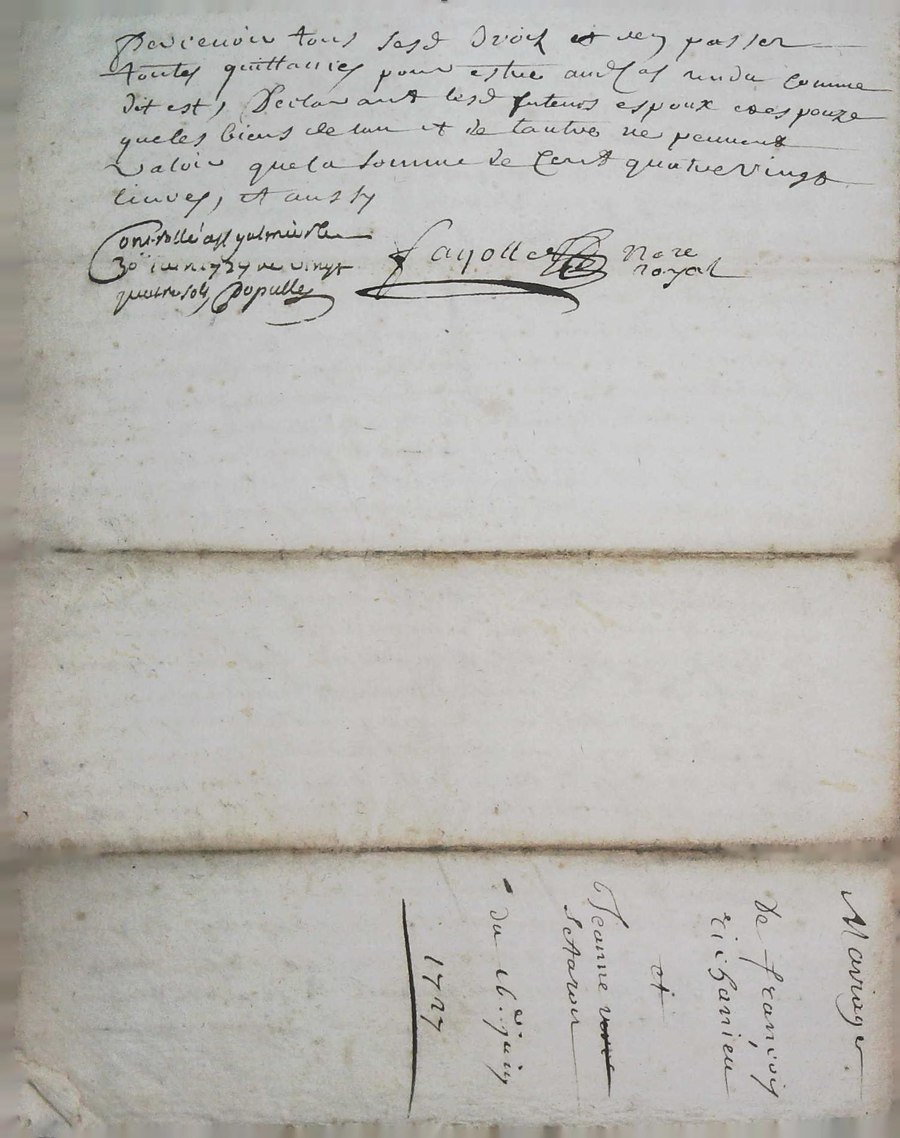 Percevoir tous sesd droits et den passer
toutes quittances pour estre aud Cas rendu comme
dit est, Declarant lesd futeurs espoux et espouze
que les biens de lun et de lautre ne peuvent
valoir que la somme de Cent quatre vingt
livres, et ansy
Controllé a
30e juin 1727 Re vingt
quatre sols Populle
Fayolle Nore
royal
Mariage
De françois
richanieu
et
Jeanne
du 16e juin
1727